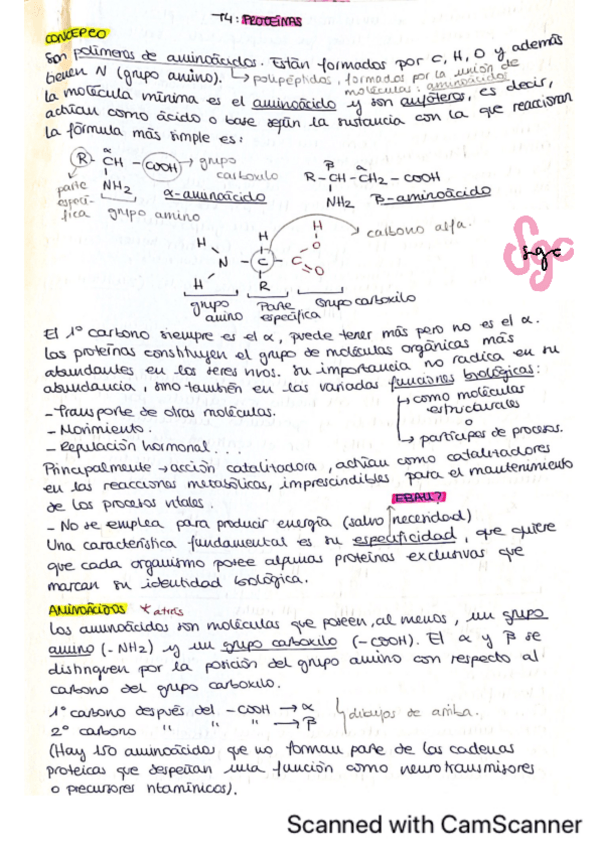 T4: PROTEÍNAS
CONCEPTO
Son polímeros de aminoácidos. Están formados por C, H, O y además
tienen N (grupo amino). → polipéptidos, formados por la unión de
moléculas: aminoácidos
la molécula mínima es el aminoácido y son anfóteros, es decir,
actúan como ácido o base según la sustancia con la que reaccionan
la fórmula más simple es:
R - CH - COOH → grupo carboxilo
α
NH2
parte específica
grupo amino
α-aminoácido
R - CH - CH2 - COOH
β α
NH2
β-aminoácido
carbono alfa.
H
H
H
O
N - C - C
O
H
R
grupo amino
Parte específica
Grupo carboxilo
sgc
El 1º carbono siempre es el α, puede tener más pero no es el α.
Las proteínas constituyen el grupo de moléculas orgánicas más
abundantes en los seres vivos. Su importancia no radica en su
abundancia, sino también en las variadas funciones biológicas:
→ como moléculas estructurales
o
→ partícipes de procesos.
- Transporte de otras moléculas.
- Movimiento.
- Regulación hormonal...
Principalmente → acción catalizadora, actúan como catalizadores
en las reacciones metabólicas, imprescindibles para el mantenimiento
de los procesos vitales.
EBAU?
- No se emplea para producir energía (salvo necesidad)
Una característica fundamental es su especificidad, que quiere
que cada organismo posee algunas proteínas exclusivas que
marcan su identidad biológica.
AMINOÁCIDOS * atrás
Los aminoácidos son moléculas que poseen, al menos, un grupo
amino (-NH2) y un grupo carboxilo (-COOH). El α y β se
distinguen por la posición del grupo amino con respecto al
carbono del grupo carboxilo.
1º carbono después del -COOH → α
2º carbono " " " → β
dibujos de arriba.
(Hay 150 aminoácidos que no forman parte de las cadenas
proteicas que despeñan una función como neurotransmisores
o precursores vitamínicos).
Scanned with CamScanner